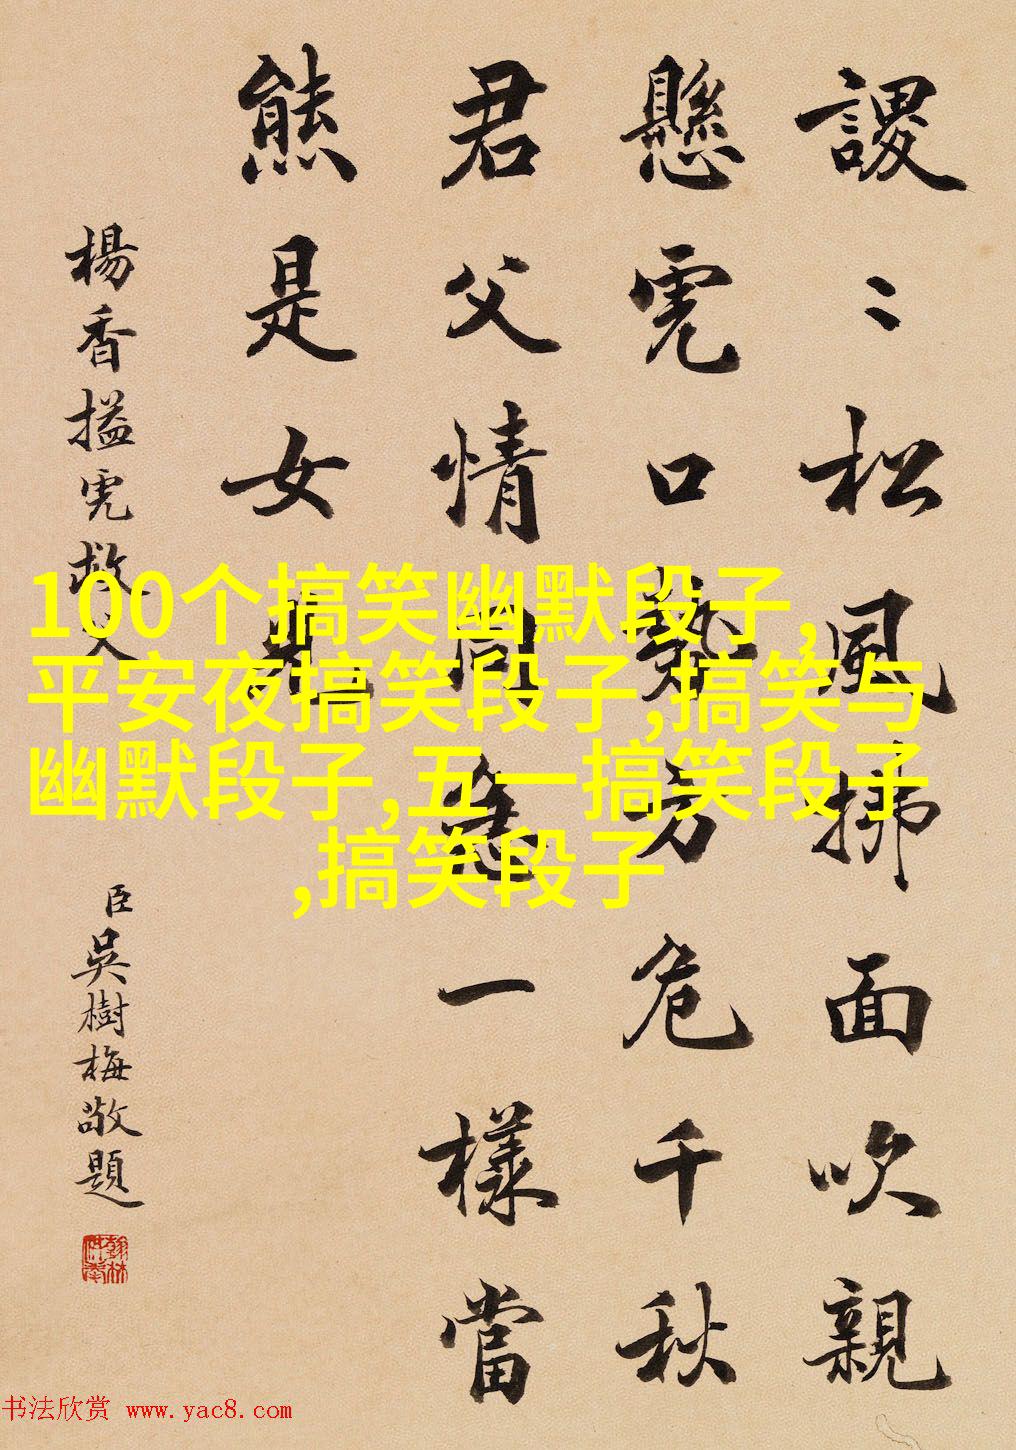 謖〻松風拂面吹親
懸虎口勢方危千秋
君父情同急一樣當
熊是女兒
楊香搤虎救父
臣吳樹梅敬題
翰林供奉
100个搞笑幽默段子,
平安夜搞笑段子,搞笑与
幽默段子,五一搞笑段子
,搞笑段子
书法欣赏 www.yac8.com